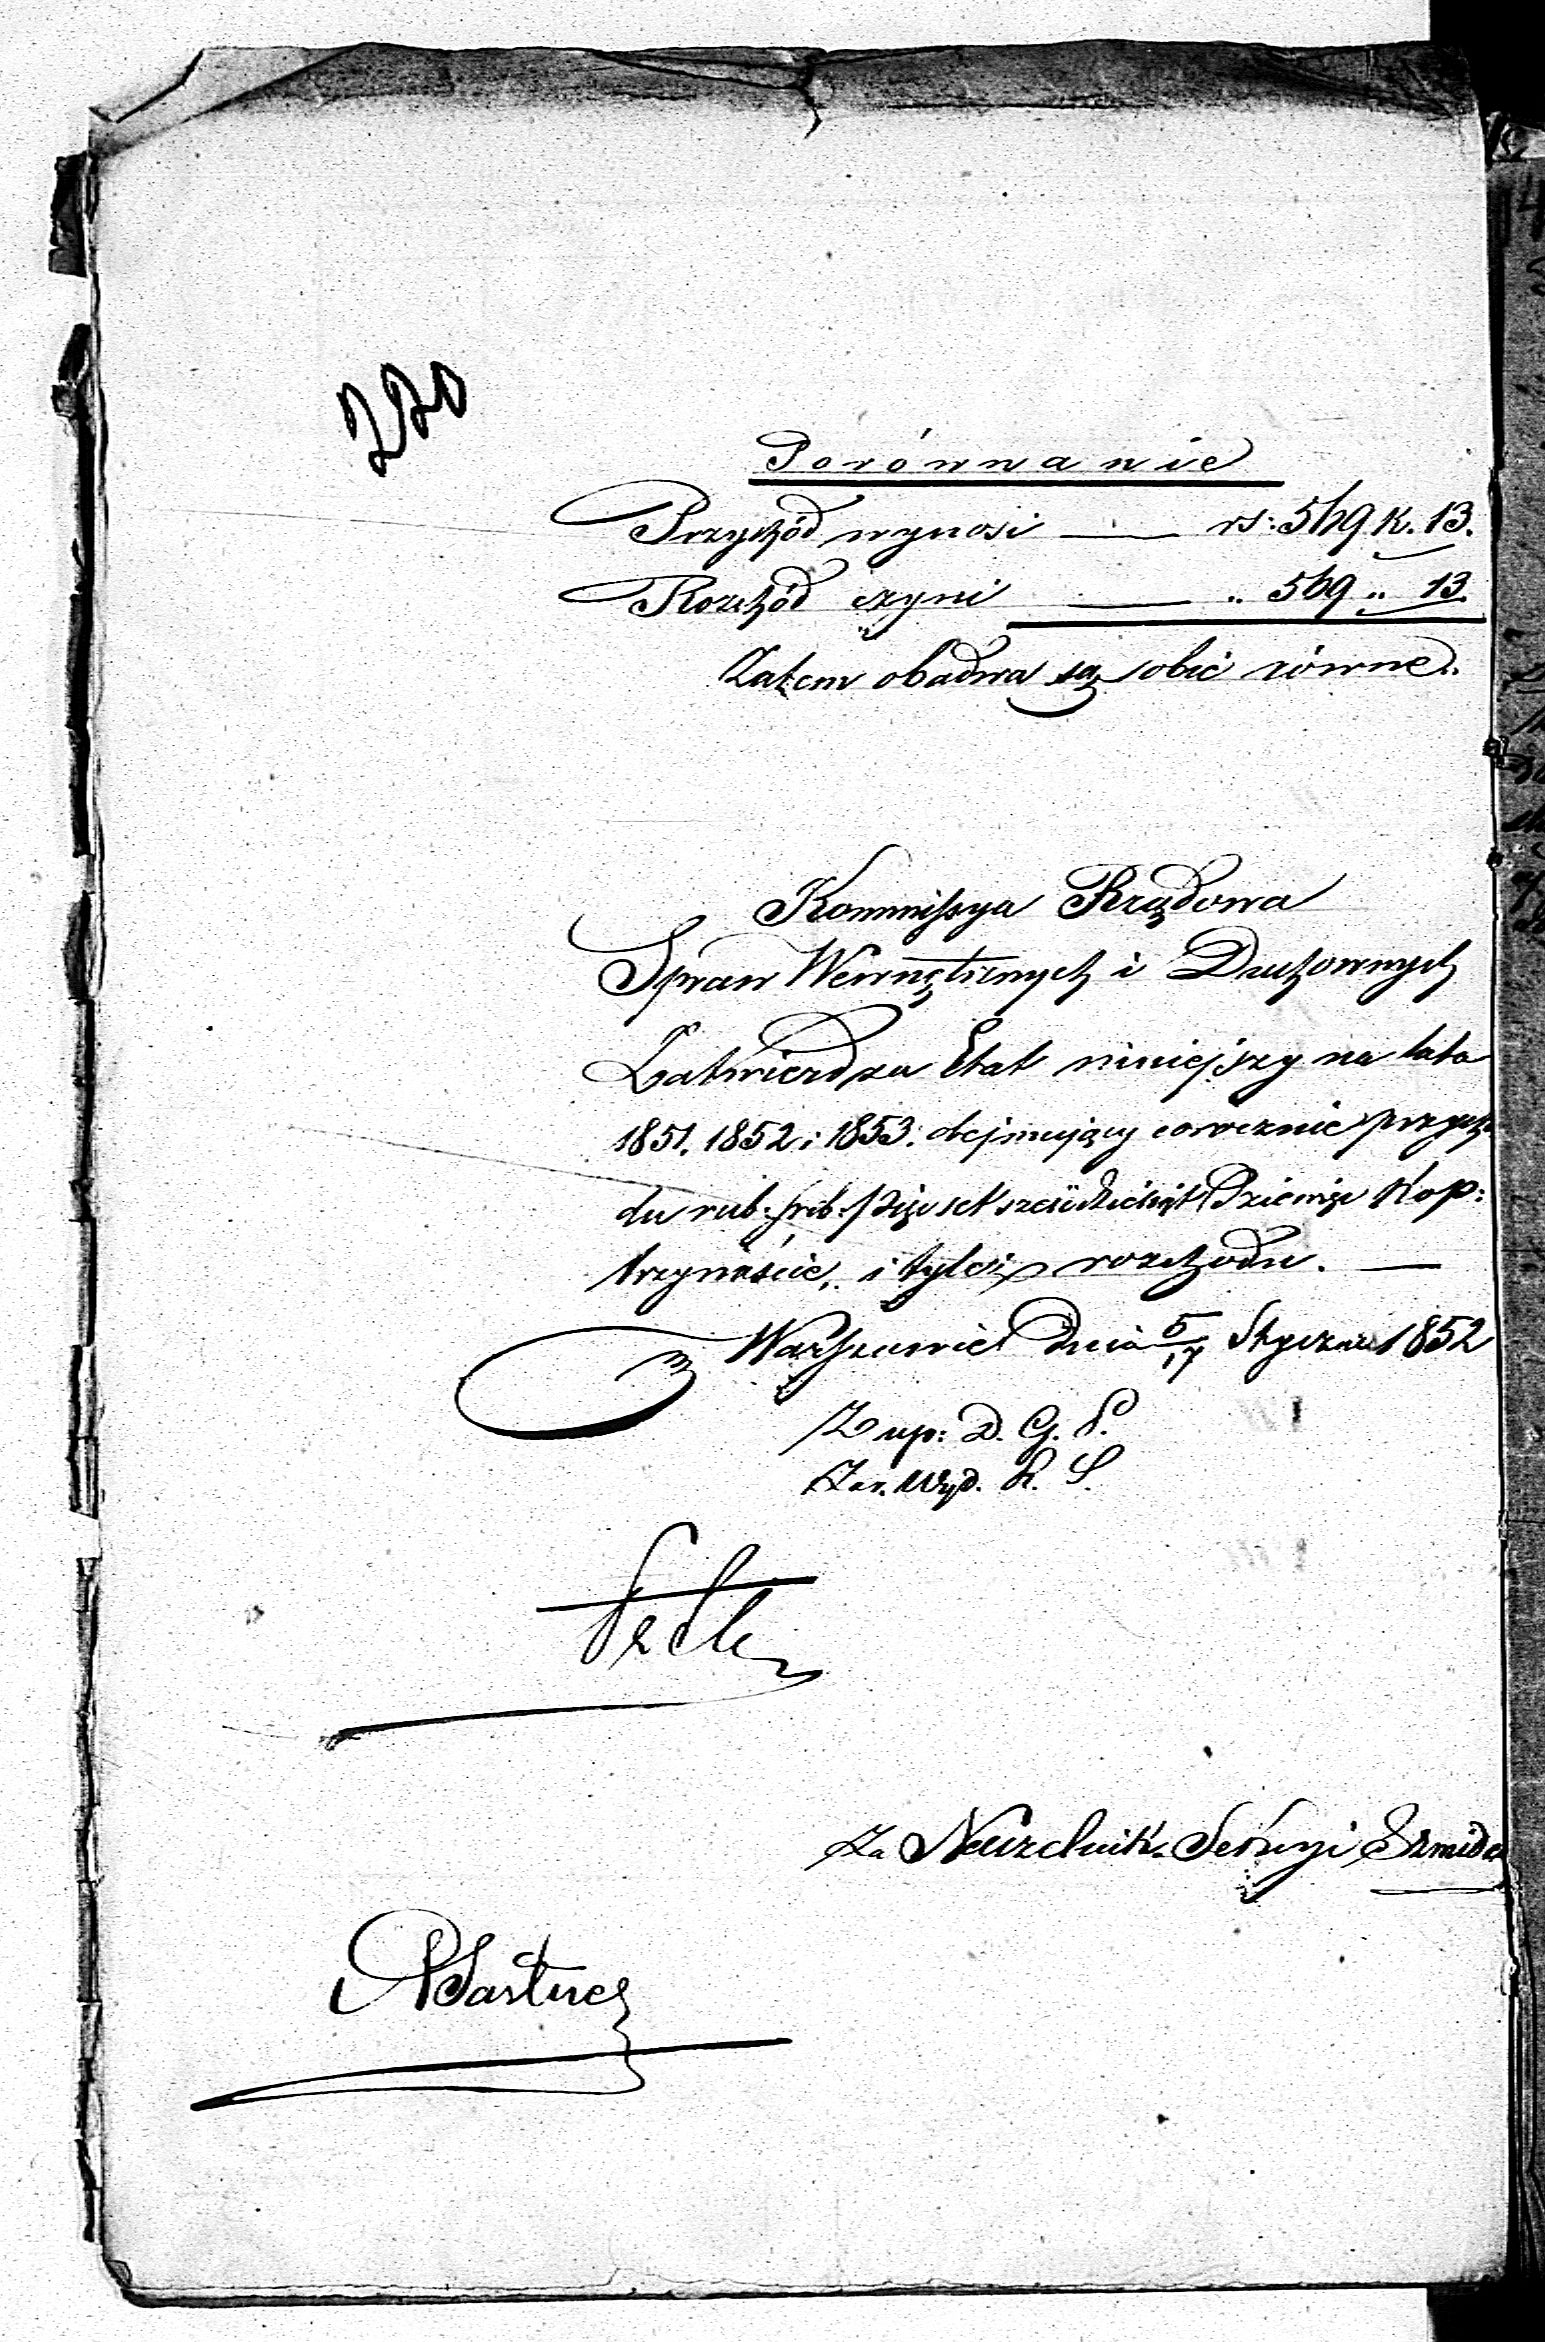 220
Porównanie
Przychód wynosi — rs: 569 k. 13.
Rozchód czyni — „ 569 „ 13.
Zatem obadwa są sobie równe.
Kommissya Rządowa
Spraw Wewnętrznych i Duchownych
Zatwierdza Etat niniejszy na lata
1851. 1852 i 1853. obejmujący corocznie przycho
du rub: srib: pięset sześćdziesiąt Dziewięć kop:
trzynaście, i tyleż rozchodu. —
w Warszawie Dnia 5/17 Stycznia 1852
Z up: D. G. P.
Za Naczelnik Sekcyi Szmide